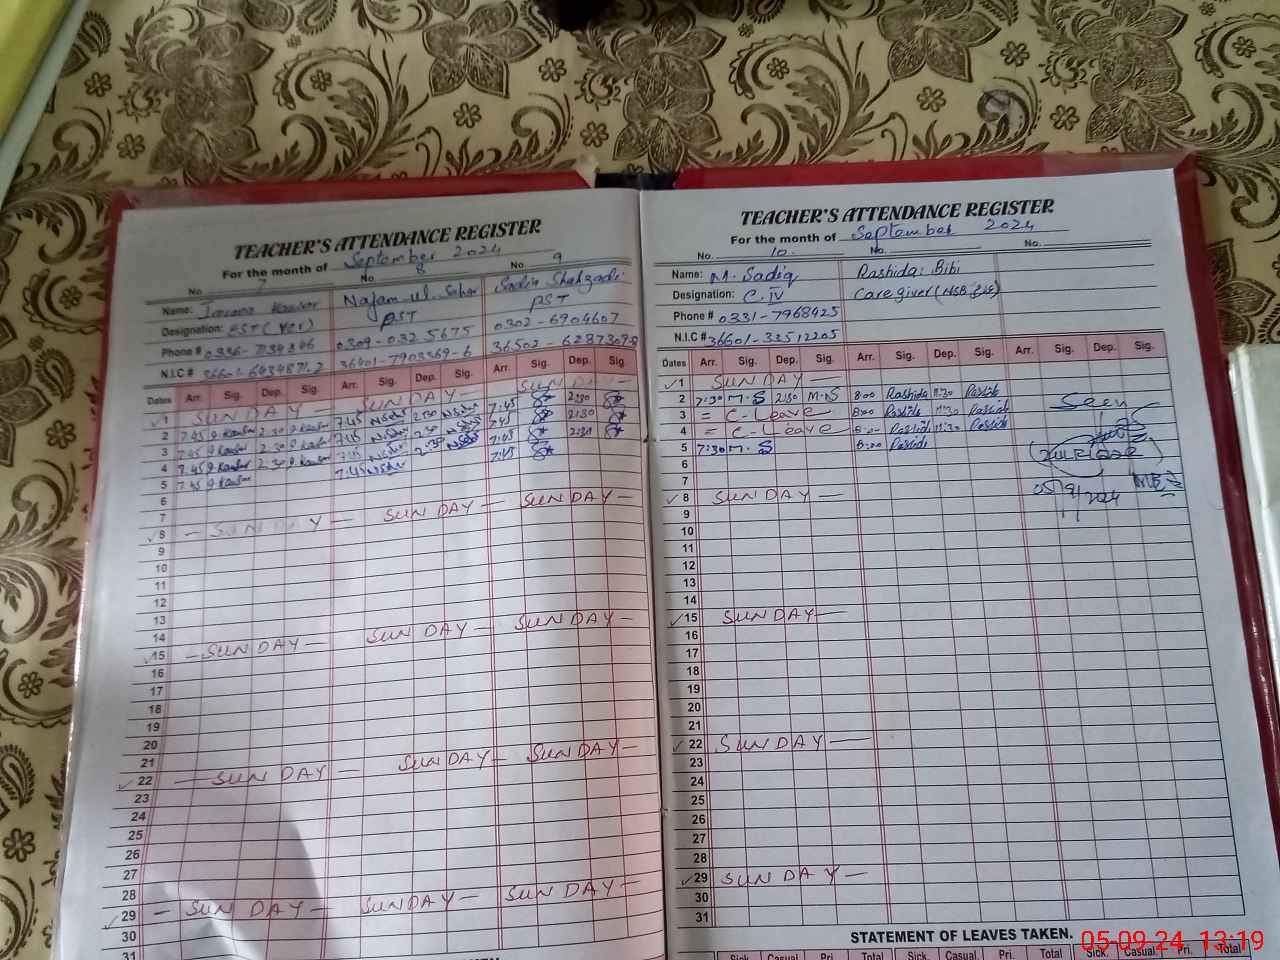 TEACHER'S ATTENDANCE REGISTER
For the month of September 2024
No. 7 No 8 No. 9
Name: Kausar Najam-ul-Sahar Sadia Shahzadi
Designation: PST PST
Phone # 0309-0325675 0302-6904607
N.I.C # 36401-7903369-6
Dates Arr. Sig. Dep. Sig. Arr. Sig. Dep. Sig. Arr. Sig. Dep. Sig.
1 SUNDAY — SUNDAY — SUNDAY —
2 7:45 2:30 7:45 2:30 7:45 2:30
3 7:45 2:30 7:45 2:30 7:45 2:30
4 7:45 2:30 7:45 2:30 7:45 2:30
5 7:45 7:45 7:45
6
7
8 — SUNDAY — SUNDAY — SUNDAY —
9
10
11
12
13
14
15 — SUNDAY — SUNDAY — SUNDAY —
16
17
18
19
20
21
22 — SUNDAY — SUNDAY — SUNDAY —
23
24
25
26
27
28
29 — SUNDAY — SUNDAY — SUNDAY —
30
31
TEACHER'S ATTENDANCE REGISTER
For the month of September 2024
No. 10. No. No.
Name: M. Sadiq Rashida Bibi
Designation: C.IV Care giver
Phone # 0331-7968425
N.I.C # 36601-33512205
Dates Arr. Sig. Dep. Sig. Arr. Sig. Dep. Sig. Arr. Sig. Dep. Sig.
1 SUNDAY —
2 7:30 M.S 2:30 M.S 8:00 Rashida 11:30 Rashida
3 = C-Leave 8:00 Rashida 11:30 Rashida
4 = C-Leave 8:00 Rashida 11:30 Rashida
5 7:30 M.S 8:00 Rashida
6
7
8 SUNDAY —
9
10
11
12
13
14
15 SUNDAY —
16
17
18
19
20
21
22 SUNDAY —
23
24
25
26
27
28
29 SUNDAY —
30
31
Seen
05/9/2024
STATEMENT OF LEAVES TAKEN.
Sick. Casual. Pri. Total Sick. Casual. Pri. Total Sick. Casual. Pri. Total
05-09-24 13:19